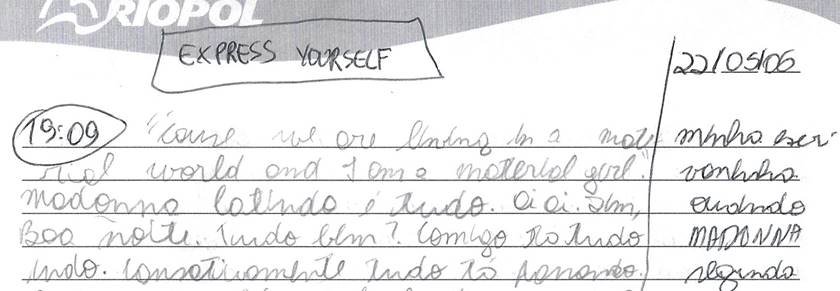 RIOPOL
EXPRESS YOURSELF
22/05/06
19:09 "'cause we are living in a mate
rial world and I am a material girl."
madonna latindo é tudo. Ai ai. Sim,
Boa noite. Tudo bem? Comigo tá tudo
indo. tudo tá
minha escri-
vaninha
ouvindo
MADONNA
segunda